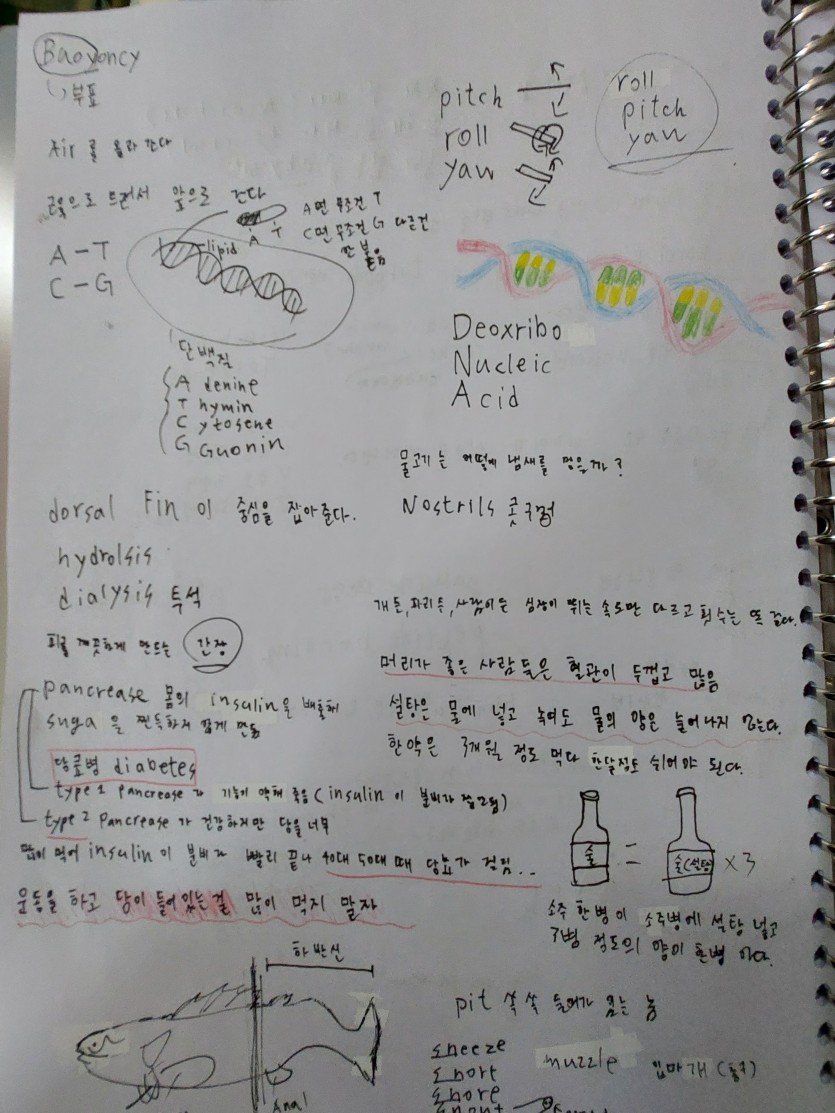 Baoyoncy
부표
Air 를 올라 간다
A-T
C-G
앞으로 간다
lipid
A T
A면 무조건 T
C면 무조건 G 다른건
안 붙음
단백질
A denine
T hymin
C ytosene
G Guonin
pitch
roll
yaw
roll
pitch
yaw
Deoxribo
Nucleic
Acid
물고기는 어떻게 냄새를 맡을까?
Nostrils 콧구멍
dorsal Fin 이 중심을 잡아준다.
hydrolsis
dialysis 투석
피를 깨끗하게 만드는 간장
pancrease 몸의 insulin을 배출해
suga을 찐득하지 않게 만듦
당뇨병 diabetes
type 1 pancrease가 기능이 약해 죽음 (insulin이 분비가
type 2 pancrease가 건강하지만 당을 너무
많이 먹어 insulin이 분비가 빨리 끝나 40대 50대 때 당뇨가 걸림...
운동을 하고 당이 들어있는걸 많이 먹지 말자
개든, 파리든, 사람이든 심장이 뛰는 속도만 다르고 횟수는 똑같다.
머리가 좋은 사람들은 혈관이 두껍고 많음
설탕은 물에 넣고 녹여도 물의 양은 늘어나지 않는다.
한약은 3개월 정도 먹다 한달정도 쉬어야 된다.
술 = 술(설탕) x3
소주 한병이 소주병에 설탕 넣고
3병 정도의 양이
하반신
Anal
pit 쏙쏙 들어가
sneeze
snort
snore
muzzle 입마개